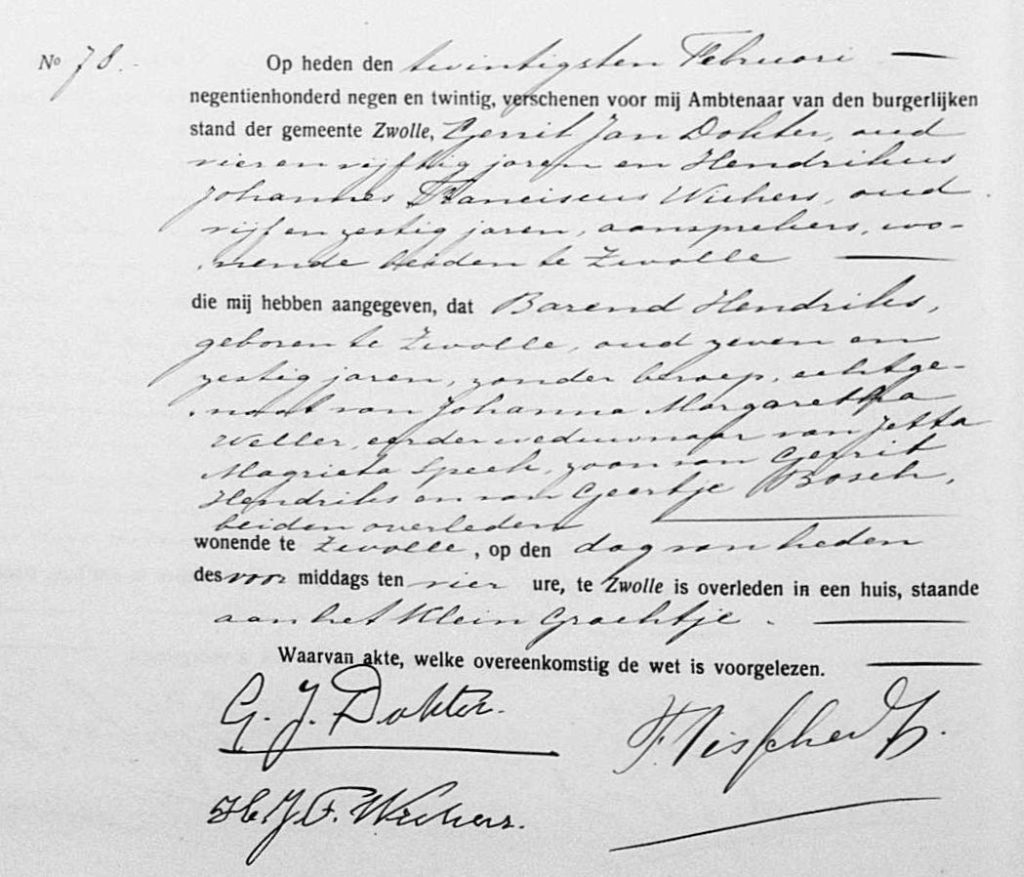 No 78.
Op heden den twintigsten Februari
negentienhonderd negen en twintig, verschenen voor mij Ambtenaar van den burgerlijken
stand der gemeente Zwolle, Gerrit Jan Dokter, oud
vier en vijftig jaren en Hendrikus
Johannes Franciscus Wichers, oud
vijf en zestig jaren, aansprekers, wo-
nende beiden te Zwolle
die mij hebben aangegeven, dat Barend Hendriks,
geboren te Zwolle, oud zeven en
zestig jaren, zonder beroep, echtge-
noot van Johanna Margaretha
Weller, eerder weduwnaar van Jetta
Magrieta Speek, zoon van Gerrit
Hendriks en van Geertje Bosch,
beiden overleden
wonende te Zwolle, op den dag van heden
des voor middags ten vier ure, te Zwolle is overleden in een huis, staande
aan het Klein Grachtje.
Waarvan akte, welke overeenkomstig de wet is voorgelezen.
G. J. Dokter.
H. J. F. Wichers.